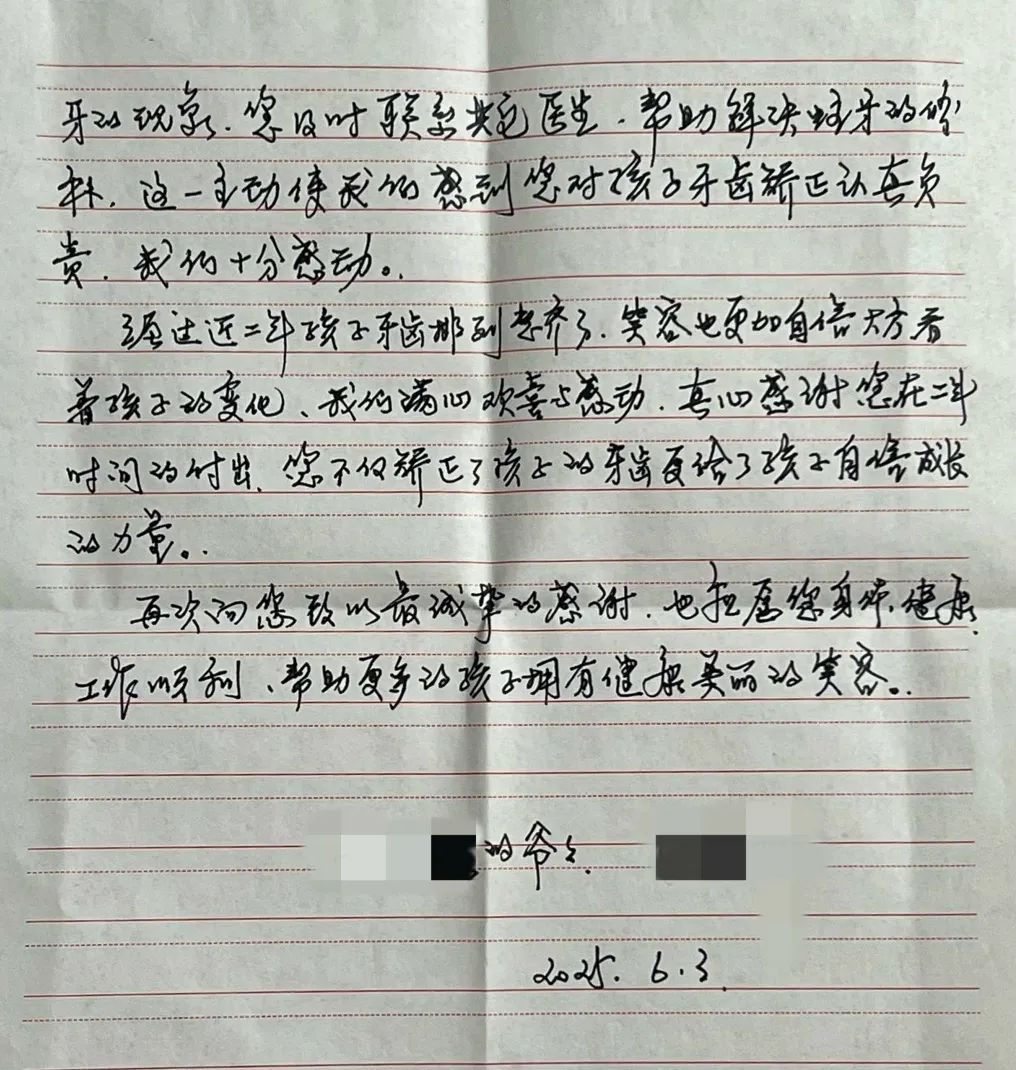 牙的现象、您及时联系其它医生、帮助解决蛀牙的修
补、这一主动使我们感到您对孩子牙齿矫正认真负
责、我们十分感动。
经过近二年孩子牙齿排列整齐了、笑容也更加自信大方看
着孩子的变化、我们满心欢喜与感动、真心感谢您在二年
时间的付出、您不仅矫正了孩子的牙齿更给了孩子自信成长
的力量。
再次向您致以最诚挚的感谢、也祝愿您身体健康、
工作顺利、帮助更多的孩子拥有健康美丽的笑容。
的爷爷
2025.6.3